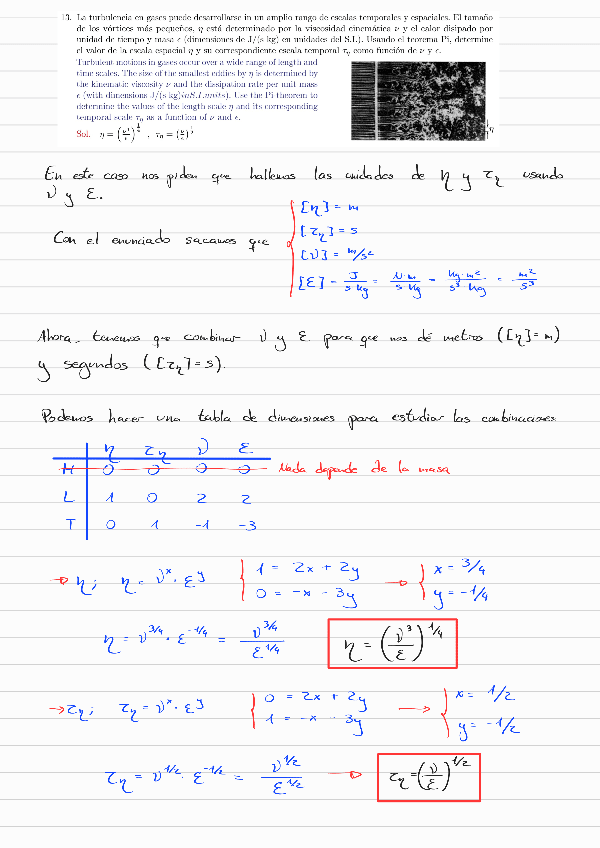 13. La turbulencia en gases puede desarrollarse en un amplio rango de escalas temporales y espaciales. El tamaño
de los vórtices más pequeños, η está determinado por la viscosidad cinemática ν y el calor disipado por
unidad de tiempo y masa ϵ (dimensiones de J/(s kg) en unidades del S.I.). Usando el teorema Pi, determine
el valor de la escala espacial η y su correspondiente escala temporal τη como función de ν y ϵ.
Turbulent motions in gases occur over a wide range of length and
time scales. The size of the smallest eddies by η is determined by
the kinematic viscosity ν and the dissipation rate per unit mass
ϵ (with dimensions J/(s kg)inS.I.units). Use the Pi theorem to
determine the values of the length scale η and its corresponding
temporal scale τη as a function of ν and ϵ.
Sol. η = (ν³/ϵ)^1/4 , τη = (ν/ϵ)^1/2
η
En este caso nos piden que hallemos las unidades de η y τη usando
ν y ε.
[η] = m
[τη] = s
Con el enunciado sacamos que
[ν] = m/s²
[ε] = J/(s·kg) = N·m/(s·kg) = kg·m²/(s³·kg) = m²/s³
Ahora, tenemos que combinar ν y ε para que nos dé metros ([η]=m)
y segundos ([τη]=s).
Podemos hacer una tabla de dimensiones para estudiar las combinaciones
η τη ν ε
M 0 0 0 0 Nada depende de la masa
L 1 0 2 2
T 0 1 -1 -3
→ η; η = ν^x · ε^y { 1 = 2x + 2y → { x = 3/4
0 = -x - 3y y = -1/4
η = ν^3/4 · ε^-1/4 = ν^3/4 / ε^1/4 η = (ν³/ε)^1/4
→ τη; τη = ν^x · ε^y { 0 = 2x + 2y → { x = 1/2
1 = -x - 3y y = -1/2
τη = ν^1/2 · ε^-1/2 = ν^1/2 / ε^1/2 → τη = (ν/ε)^1/2